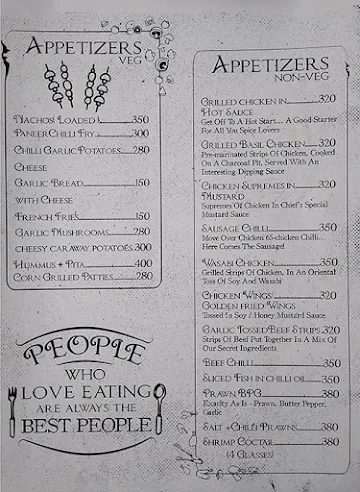 APPETIZERS
VEG
NACHOS! LOADED !.........350
PANEER CHILLI FRY.........300
CHILLI GARLIC POTATOES......280
CHEESE
GARLIC BREAD.........150
WITH CHEESE
FRENCH FRIES.........150
GARLIC MUSHROOMS.........280
CHEESY CARAWAY POTATOES.300
HUMMUS + PITA.........400
CORN GRILLED PATTIES.......280
PEOPLE
WHO
LOVE EATING
ARE ALWAYS THE
BEST PEOPLE
APPETIZERS
NON-VEG
GRILLED CHICKEN IN.........320
HOT SAUCE
Get Off To A Hot Start... A Good Starter
For All You Spice Lovers
GRILLED BASIL CHICKEN.......320
Pre-marinated Strips Of Chicken, Cooked
On A Charcoal Pit, Served With An
Interesting Dipping Sauce
CHICKEN SUPREMES IN.......320
MUSTARD
Supremes Of Chicken In Chef's Special
Mustard Sauce
SAUSAGE CHILLI.........350
Move Over Chicken 65-chicken Chilli...
Here Comes The Sausage!
WASABI CHICKEN.........350
Grilled Strips Of Chicken, In An Oriental
Toss Of Soy And Wasabi
CHICKEN WINGS.........320
GOLDEN FRIED WINGS
Tossed In Soy / Honey Mustard Sauce
GARLIC TOSSED BEEF STRIPS 320
Strips Of Beef Put Together In A Mix Of
Our Secret Ingredients
BEEF CHILLI.........350
SLICED FISH IN CHILLI OIL.....350
PRAWN BPG.........380
Exactly As Is - Prawn, Butter Pepper,
Garlic
SALT + CHILLI PRAWNS.......380
SHRIMP COCTAIL.........380
(4 GLASSES)